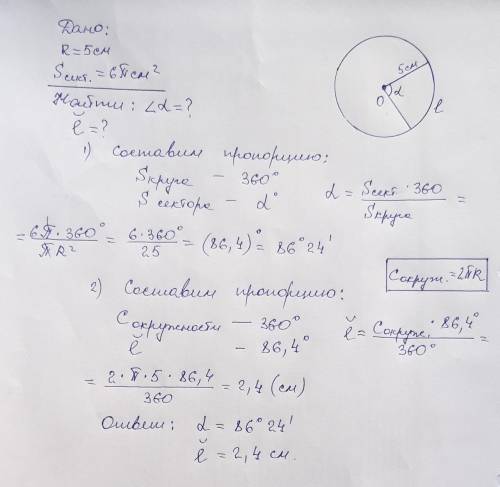 Дано:
R = 5 см
Sсект. = 6π см²
Найти: ∠α = ?
l̆ = ?
5 см
α
O
l
1) Составим пропорцию:
Sкруга — 360°
Sсектора — α°
α = Sсект · 360 / Sкруга =
= 6π · 360° / πR² = 6 · 360° / 25 = (86,4)° = 86° 24'
Cокруж. = 2πR
2) Составим пропорцию:
Cокружности — 360°
l̆ — 86,4°
l̆ = Cокруж. · 86,4° / 360° =
= 2 · π · 5 · 86,4 / 360 = 2,4 (см)
Ответ: α = 86° 24'
l̆ = 2,4 см.